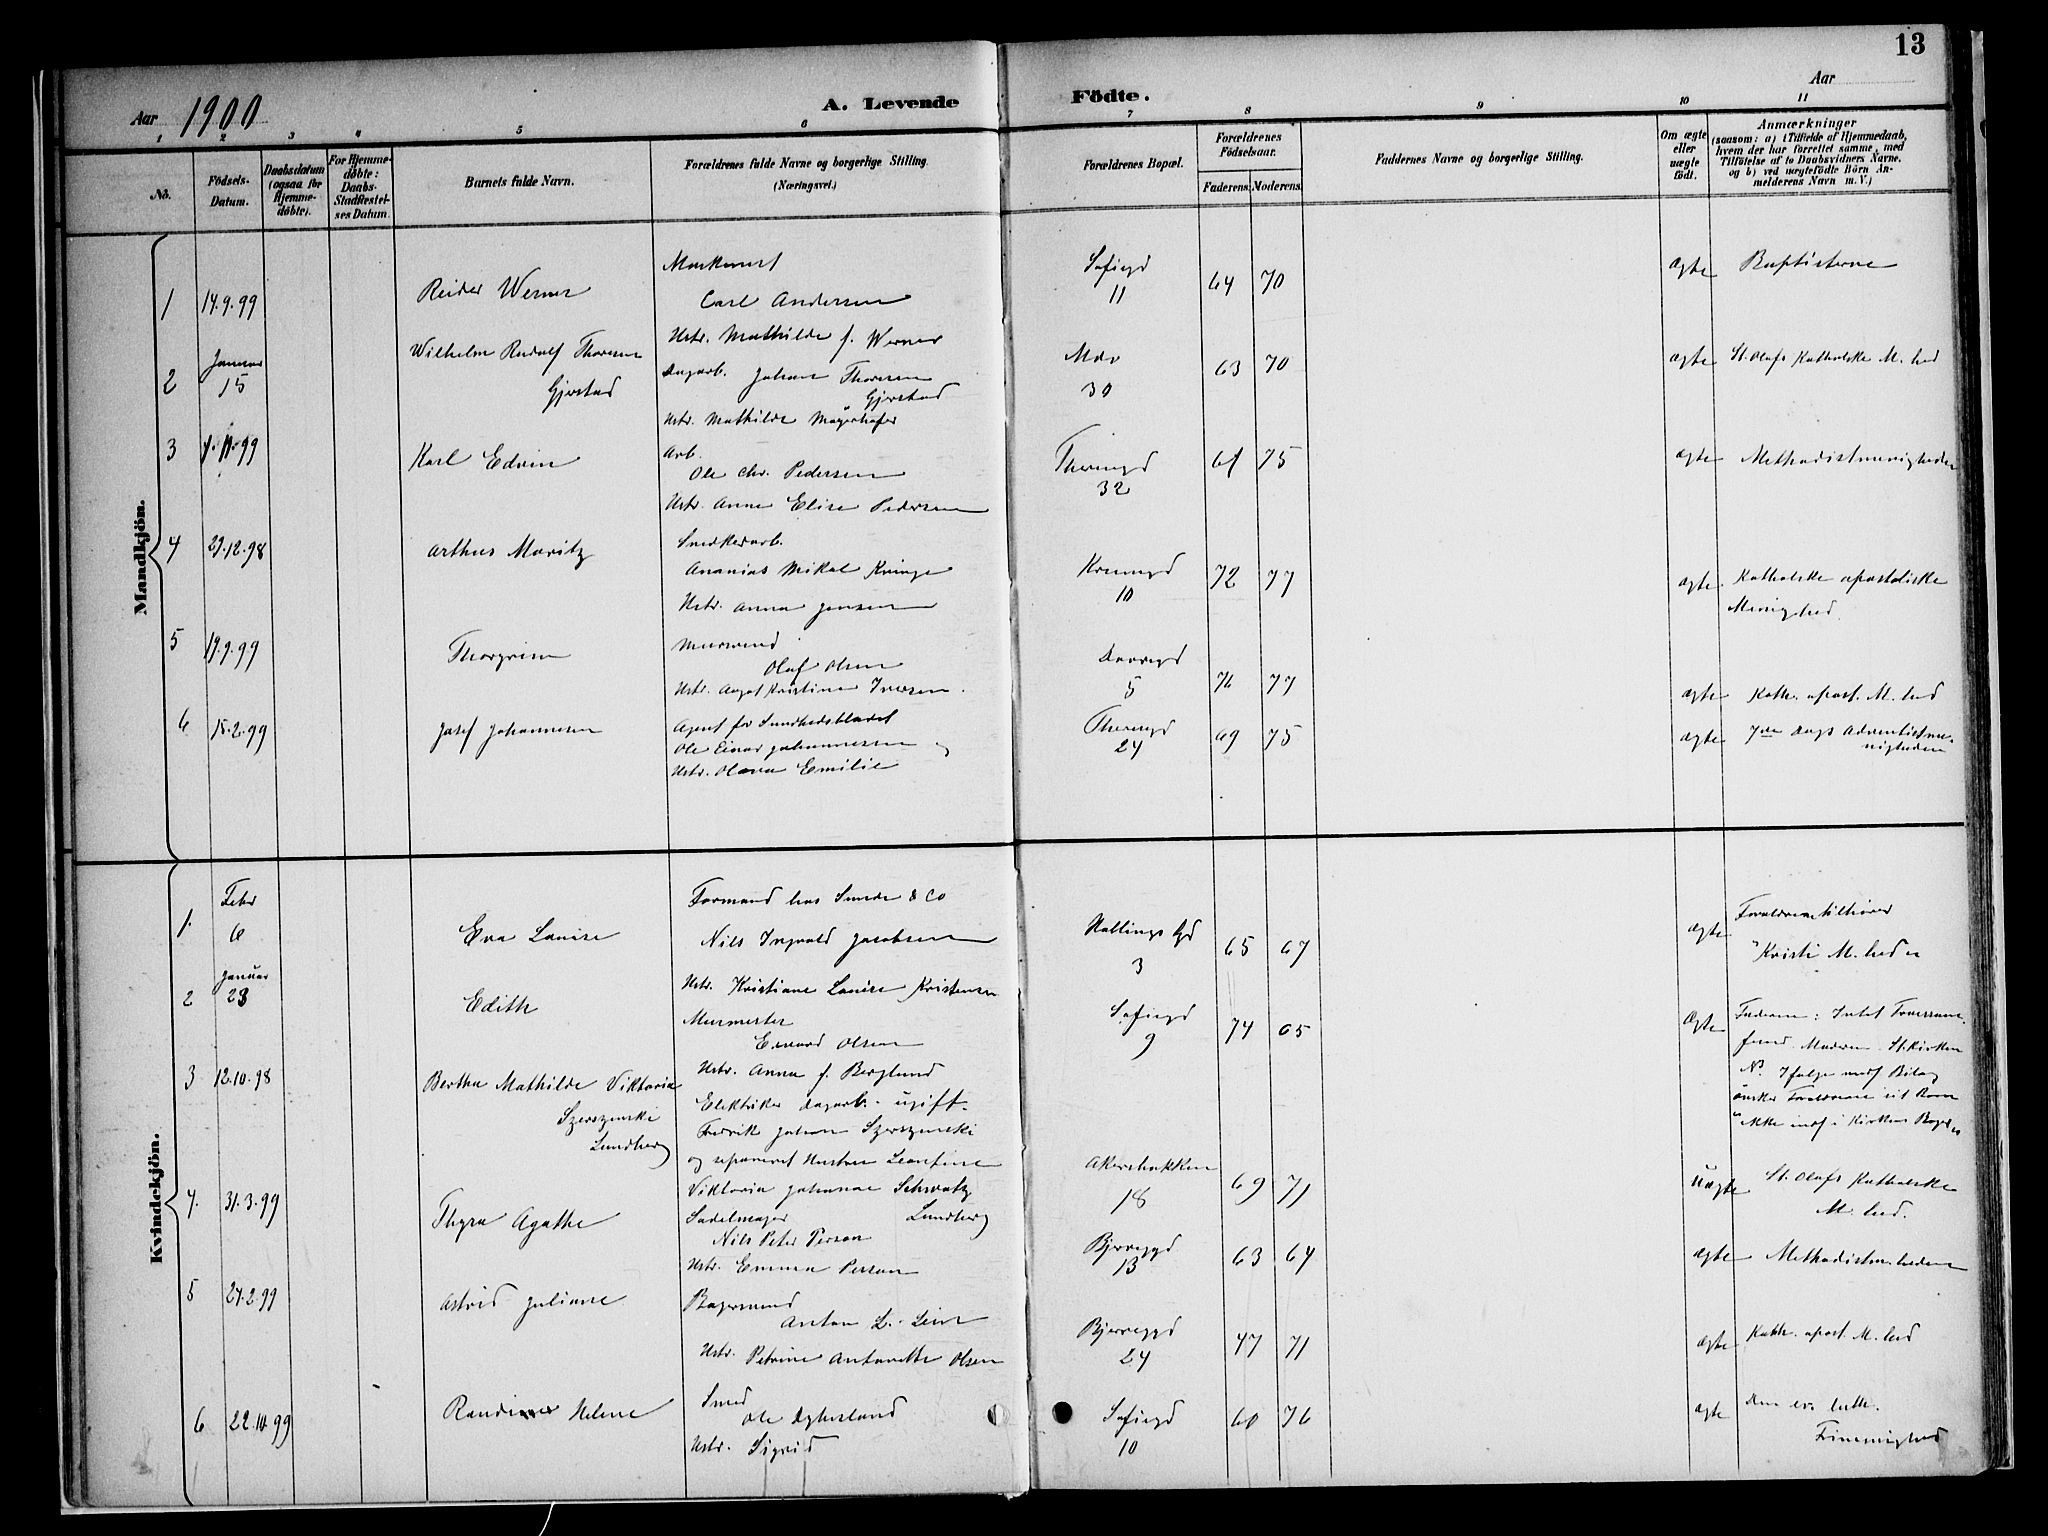 13
Aar 1900
A. Levende
Födte.
Aar
1 2 3 4 5 6 7 8 9 10 11
No.
Födsels-Datum.
Daabsdatum (ogsaa for Hjemmedöbte).
For Hjemmedöbte: Daabs-Stadfæstelses Datum.
Barnets fulde Navn.
Forældrenes fulde Navne og borgerlige Stilling. (Næringsvei.)
Forældrenes Bopæl.
Forældrenes Födselsaar.
Faderens. Moderens.
Faddernes Navne og borgerlige Stilling.
Om ægte eller uægte födt.
Anmærkninger
(saasom: a) i Tilfælde af Hjemmedaab, hvem der har forrettet samme, med Tilföielse af to Daabsvidners Navne, og b) ved uægtefödte Börn Anmelderens Navn m. V.)
Mandkjön.
1 14.9.99 Reider Werner
Carl Andersen
Ustr. Mathilde f. Werner
Sofiegd 11 64 70 ægte Baptisterne
2 Januar 15 Wilhelm Rudolf Thoresen Gjerstad
Dagarb. Johan Thoresen Gjerstad
Ustr. Mathilde Mayerhofer
30 63 70 ægte St. Olafs Katholske M.hed
3 4.11.99 Karl Edvin
Arb.
Ole Chr. Pedersen
Ustr. Anne Elise Pedersen
32 67 75 ægte Methodistmenigheden
4 29.12.98 Arthur Moritz
Snedkerarb.
Ananias Mikal
Ustr. Anna Jensen
10 72 77 ægte Katholske apostoliske
Menighed.
5 19.9.99 Thorgrim
Murersvend
Olaf Olsen
Ustr. Aagot Kristine Iversen.
5 76 77 ægte Kath. apost. M.hed
6 15.2.99 Josef Johannesen
Agent for Sundhedsbladet
Ole Einar Johannessen og
Ustr. Olava Emilie
24 69 75 ægte 7de Dags Adventistmenigheden
Kvindekjön.
1. Febr 6 Eva Louise
Formand hos Sunde & Co
Nils Ingvald Jacobsen
Ustr. Kristiane Louise Kristensen
Hallings Gd 3 65 67 ægte Forældrene tilhører
"Kristi M.hed"
2 Januar 23 Edith
Murmester
Edvard Olsen
Ustr. Anna f. Berglund
Sofiegd 9 74 65 Ægte Faderen: Intet Trossamfund. Moderen: St.Kirken
3 12.10.98 Bertha Mathilde Viktoria
Szerszenski
Lundberg
Elektriker dagarb. ugift.
Fredrik Johan Szerszenski
og separeret Hustru Leontine
Viktoria Johanne Schwatz
Lundberg
Akersbakken 18 69 71 Uægte St. Olafs Katholske
M.hed.
4. 31.3.99 Thyra Agathe
Sadelmager
Nils Peter Person
Ustr. Emma Person
Bjerregd 13 63 64 ægte Methodistm.heden
5 27.2.99 Astrid Juliane
Bagersvend
Anton L. Lein
Ustr. Petrine Antonette Olsen
Bjerregd 24 47 71 ægte Kath. apost. M.hed
6 22.10.99 Helene
Smed
Ole
Ustr. Sigrid
Sofiegd 10 60 76 ægte Den ev. luth.
Frimenighed